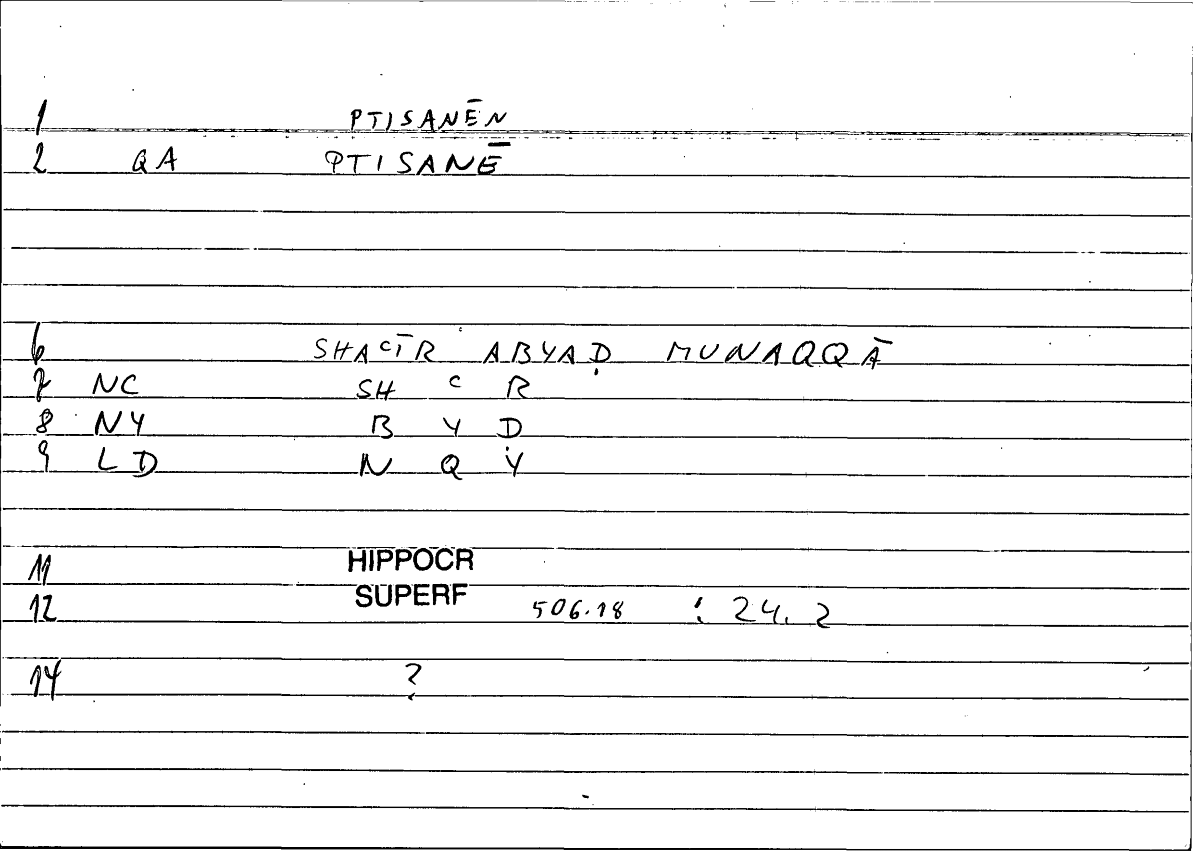 1 PTISANĒN
2 QA PTISANĒ
6 SHAʿĪR ABYAḌ MUNAQQĀ
7 NC SH ʿ R
8 NY B Y Ḍ
9 LD N Q Y
11 HIPPOCR
12 SUPERF 506.18 : 24.2
14 ?